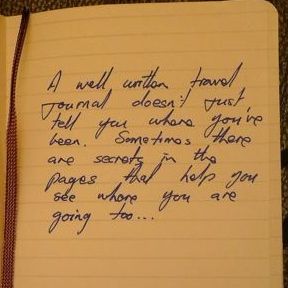 A well written travel
journal doesn't just
tell you where you've
been. Sometimes there
are secrets in the
pages that help you
see where you are
going too...